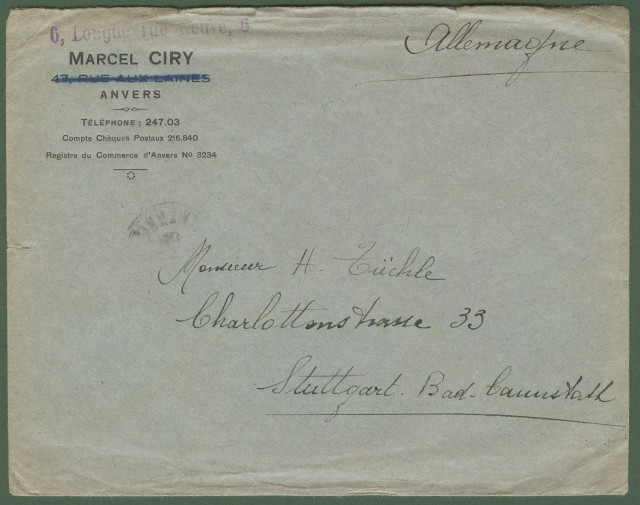 6, Longue rue Neuve, 6
MARCEL CIRY
47, RUE AUX LAINES
ANVERS
TÉLÉPHONE : 247.03
Compte Chèques Postaux 216.840
Registre du Commerce d'Anvers No 3234
Allemagne
Monsieur H. Tüchle
Charlottenstrasse 33
Stuttgart. Bad-Cannstatt